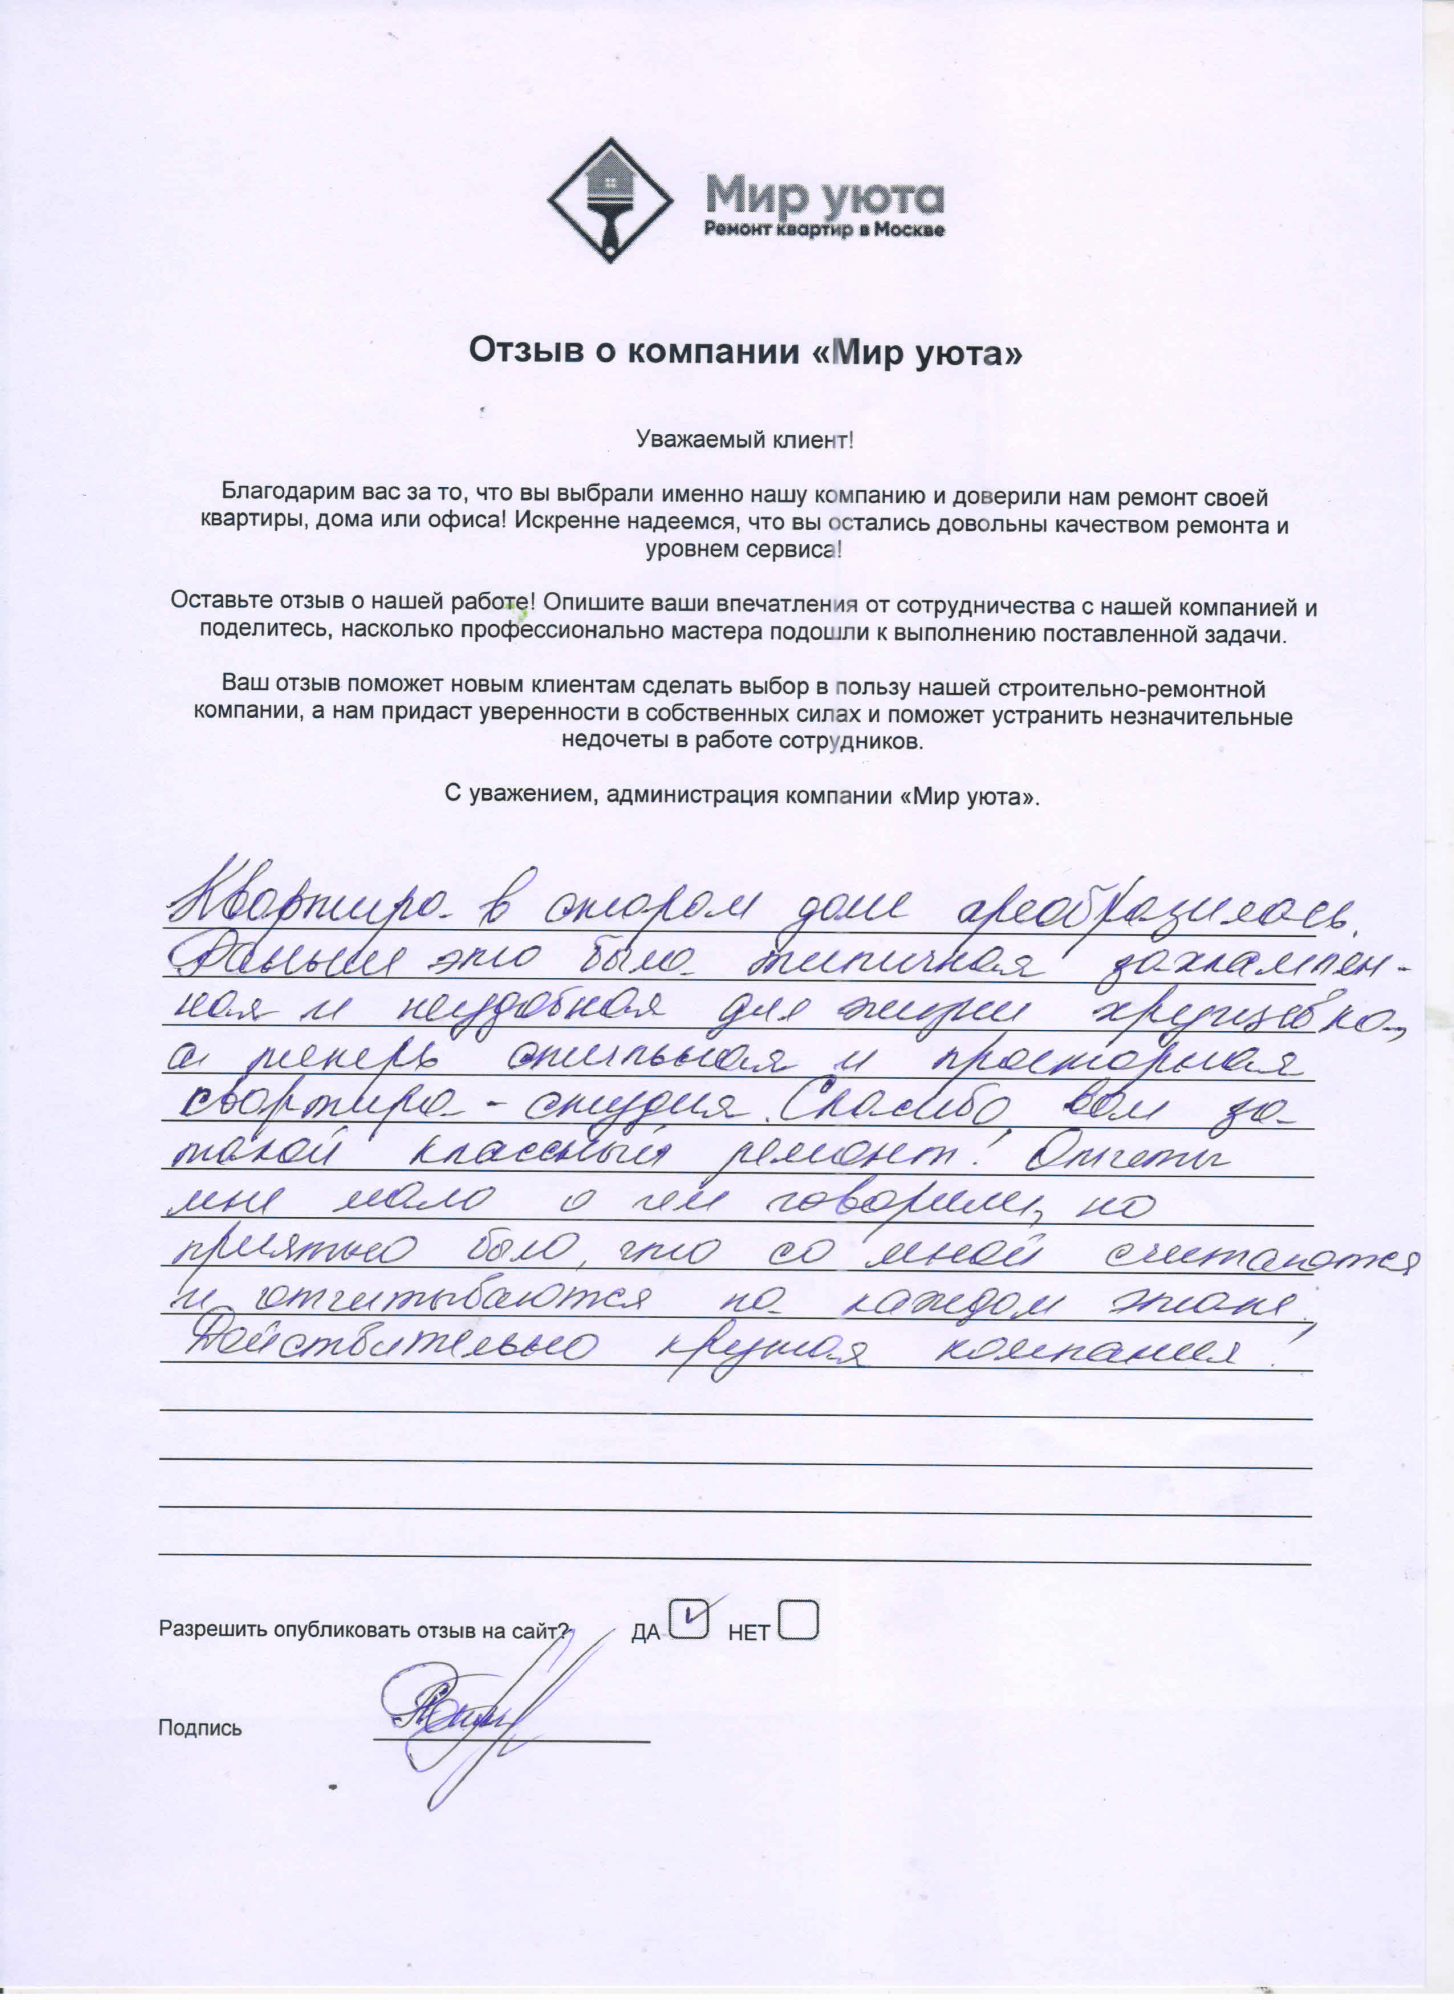 Мир уюта
Ремонт квартир в Москве
Отзыв о компании «Мир уюта»
Уважаемый клиент!
Благодарим вас за то, что вы выбрали именно нашу компанию и доверили нам ремонт своей
квартиры, дома или офиса! Искренне надеемся, что вы остались довольны качеством ремонта и
уровнем сервиса!
Оставьте отзыв о нашей работе! Опишите ваши впечатления от сотрудничества с нашей компанией и
поделитесь, насколько профессионально мастера подошли к выполнению поставленной задачи.
Ваш отзыв поможет новым клиентам сделать выбор в пользу нашей строительно-ремонтной
компании, а нам придаст уверенности в собственных силах и поможет устранить незначительные
недочеты в работе сотрудников.
С уважением, администрация компании «Мир уюта».
Квартира в старом доме преобразилась.
Раньше это была типичная захламлен-
ная и неудобная для жизни хрущевка,
а теперь стильная и просторная
квартира-студия. Спасибо вам за
такой классный ремонт! Отчеты
мне мало о чем говорили, но
приятно было, что со мной считаются
и отчитываются на каждом этапе.
Действительно крутая компания!
Разрешить опубликовать отзыв на сайт? ДА НЕТ
Подпись